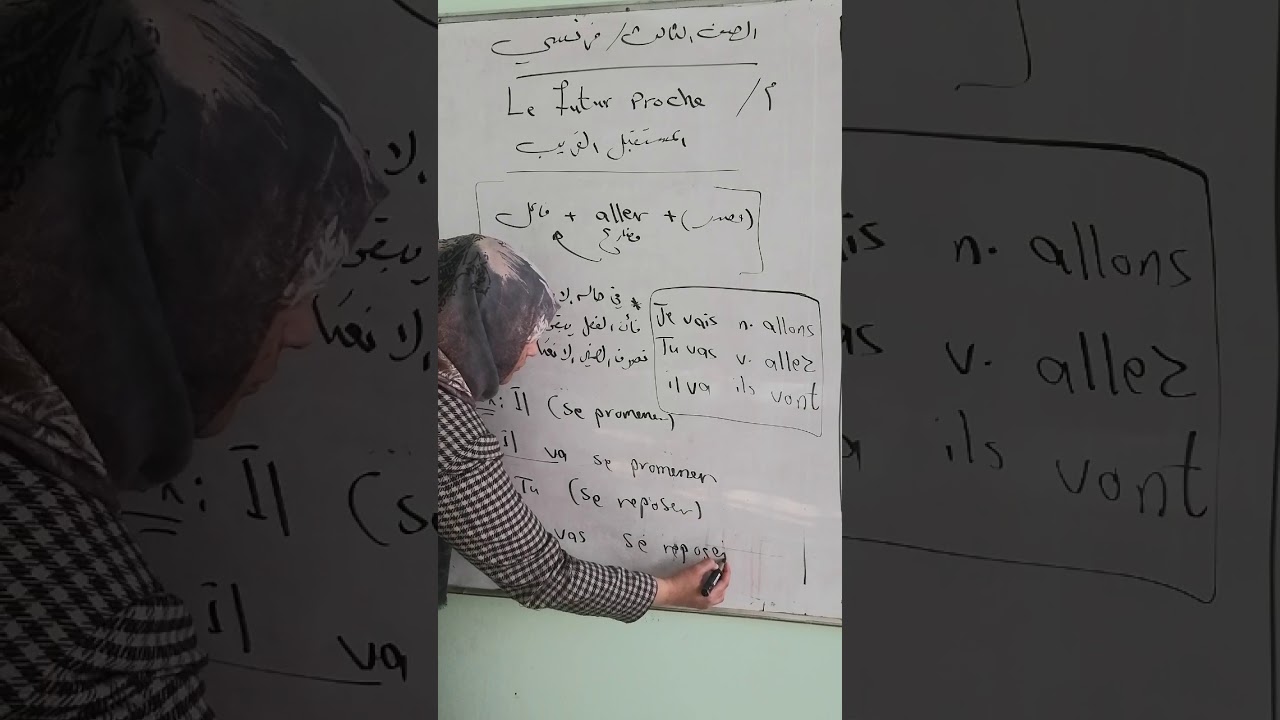 الصف الثالث / فرنسي
Le Futur Proche / أ
المستقبل القريب
فاعل + aller + (مصدر)
مضارع
* في حاله الا
فأن الفعل يبقى
تصرف الضمير الانعكا
Je vais n. allons
Tu vas v. allez
il va ils vont
x: Il (se promener)
Il va se promener
Tu (se reposer)
vas se reposer